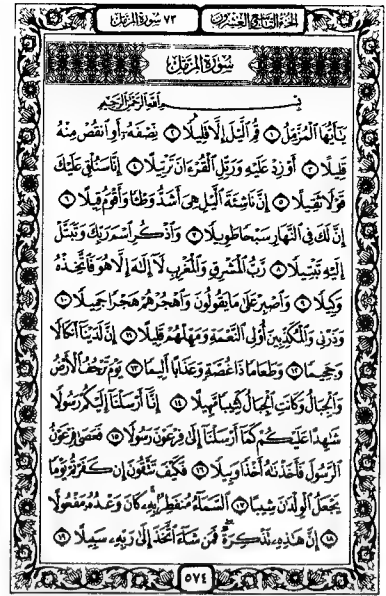 الجزء التاسع والعشرون ٧٣ سورة المزمل
سورة المزمل
بسم الله الرحمن الرحيم
يَٰٓأَيُّهَا ٱلْمُزَّمِّلُ ١ قُمِ ٱلَّيْلَ إِلَّا قَلِيلًا ٢ نِّصْفَهُۥٓ أَوِ ٱنقُصْ مِنْهُ
قَلِيلًا ٣ أَوْ زِدْ عَلَيْهِ وَرَتِّلِ ٱلْقُرْءَانَ تَرْتِيلًا ٤ إِنَّا سَنُلْقِى عَلَيْكَ
قَوْلًا ثَقِيلًا ٥ إِنَّ نَاشِئَةَ ٱلَّيْلِ هِىَ أَشَدُّ وَطْـًٔا وَأَقْوَمُ قِيلًا ٦
إِنَّ لَكَ فِى ٱلنَّهَارِ سَبْحًا طَوِيلًا ٧ وَٱذْكُرِ ٱسْمَ رَبِّكَ وَتَبَتَّلْ
إِلَيْهِ تَبْتِيلًا ٨ رَّبُّ ٱلْمَشْرِقِ وَٱلْمَغْرِبِ لَآ إِلَٰهَ إِلَّا هُوَ فَٱتَّخِذْهُ
وَكِيلًا ٩ وَٱصْبِرْ عَلَىٰ مَا يَقُولُونَ وَٱهْجُرْهُمْ هَجْرًا جَمِيلًا ١٠
وَذَرْنِى وَٱلْمُكَذِّبِينَ أُو۟لِى ٱلنَّعْمَةِ وَمَهِّلْهُمْ قَلِيلًا ١١ إِنَّ لَدَيْنَآ أَنكَالًا
وَجَحِيمًا ١٢ وَطَعَامًا ذَا غُصَّةٍ وَعَذَابًا أَلِيمًا ١٣ يَوْمَ تَرْجُفُ ٱلْأَرْضُ
وَٱلْجِبَالُ وَكَانَتِ ٱلْجِبَالُ كَثِيبًا مَّهِيلًا ١٤ إِنَّآ أَرْسَلْنَآ إِلَيْكُمْ رَسُولًا
شَٰهِدًا عَلَيْكُمْ كَمَآ أَرْسَلْنَآ إِلَىٰ فِرْعَوْنَ رَسُولًا ١٥ فَعَصَىٰ فِرْعَوْنُ
ٱلرَّسُولَ فَأَخَذْنَٰهُ أَخْذًا وَبِيلًا ١٦ فَكَيْفَ تَتَّقُونَ إِن كَفَرْتُمْ يَوْمًا
يَجْعَلُ ٱلْوِلْدَٰنَ شِيبًا ١٧ ٱلسَّمَآءُ مُنفَطِرٌۢ بِهِۦ كَانَ وَعْدُهُۥ مَفْعُولًا
١٨ إِنَّ هَٰذِهِۦ تَذْكِرَةٌ فَمَن شَآءَ ٱتَّخَذَ إِلَىٰ رَبِّهِۦ سَبِيلًا ١٩
٥٧٤